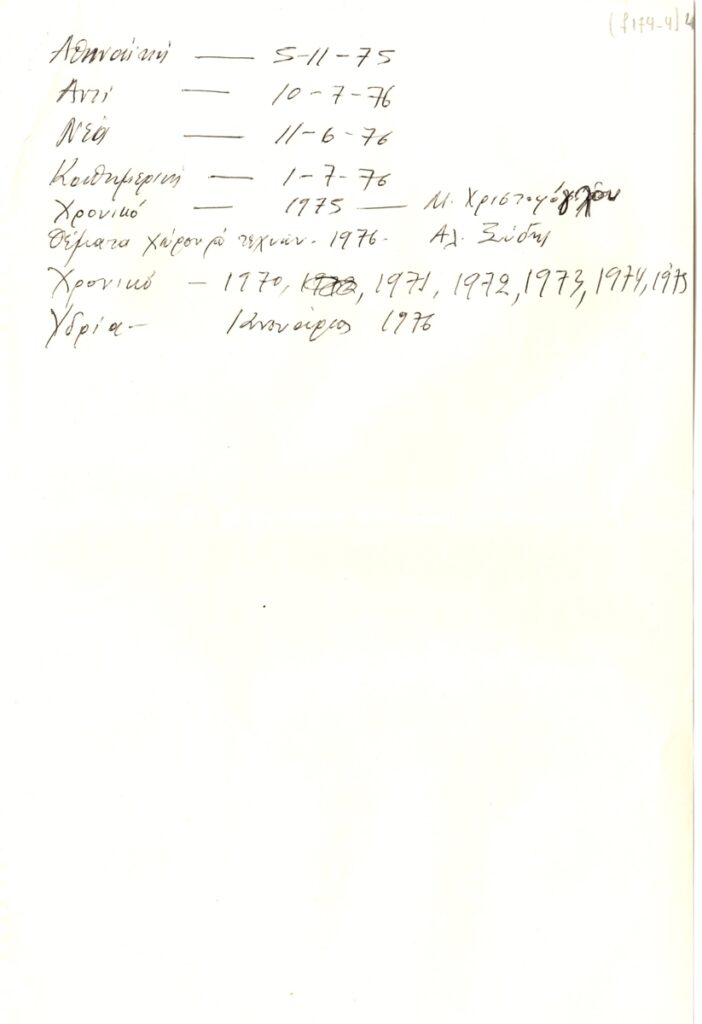 (f174-4) 4
Αθηναϊκή — 5-11-75
Αντί — 10-7-76
Νέα — 11-6-76
Καθημερινή — 1-7-76
Χρονικό — 1975 — Μ. Χριστοφόγλου
Θέματα χώρου τεχνών. 1976. Αλ. Ξύδης
Χρονικό — 1970, 1971, 1972, 1973, 1974, 1975
Υδρία — Ιανουάριος 1976